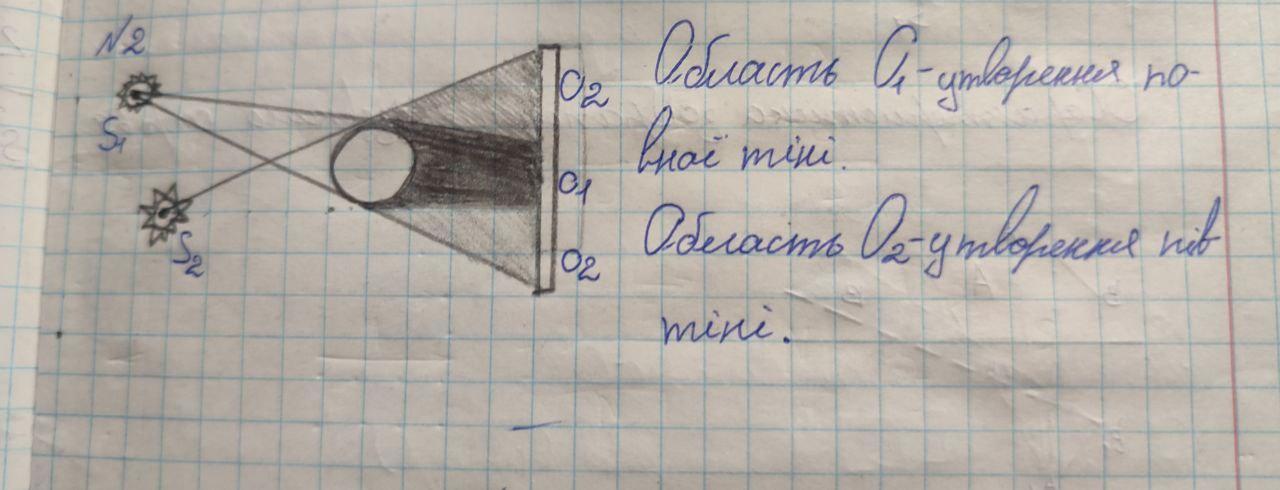 N2
S1
S2
O2
O1
O2
Область O1-утворення по-
вної тіні.
Область O2-утворення пів
тіні.